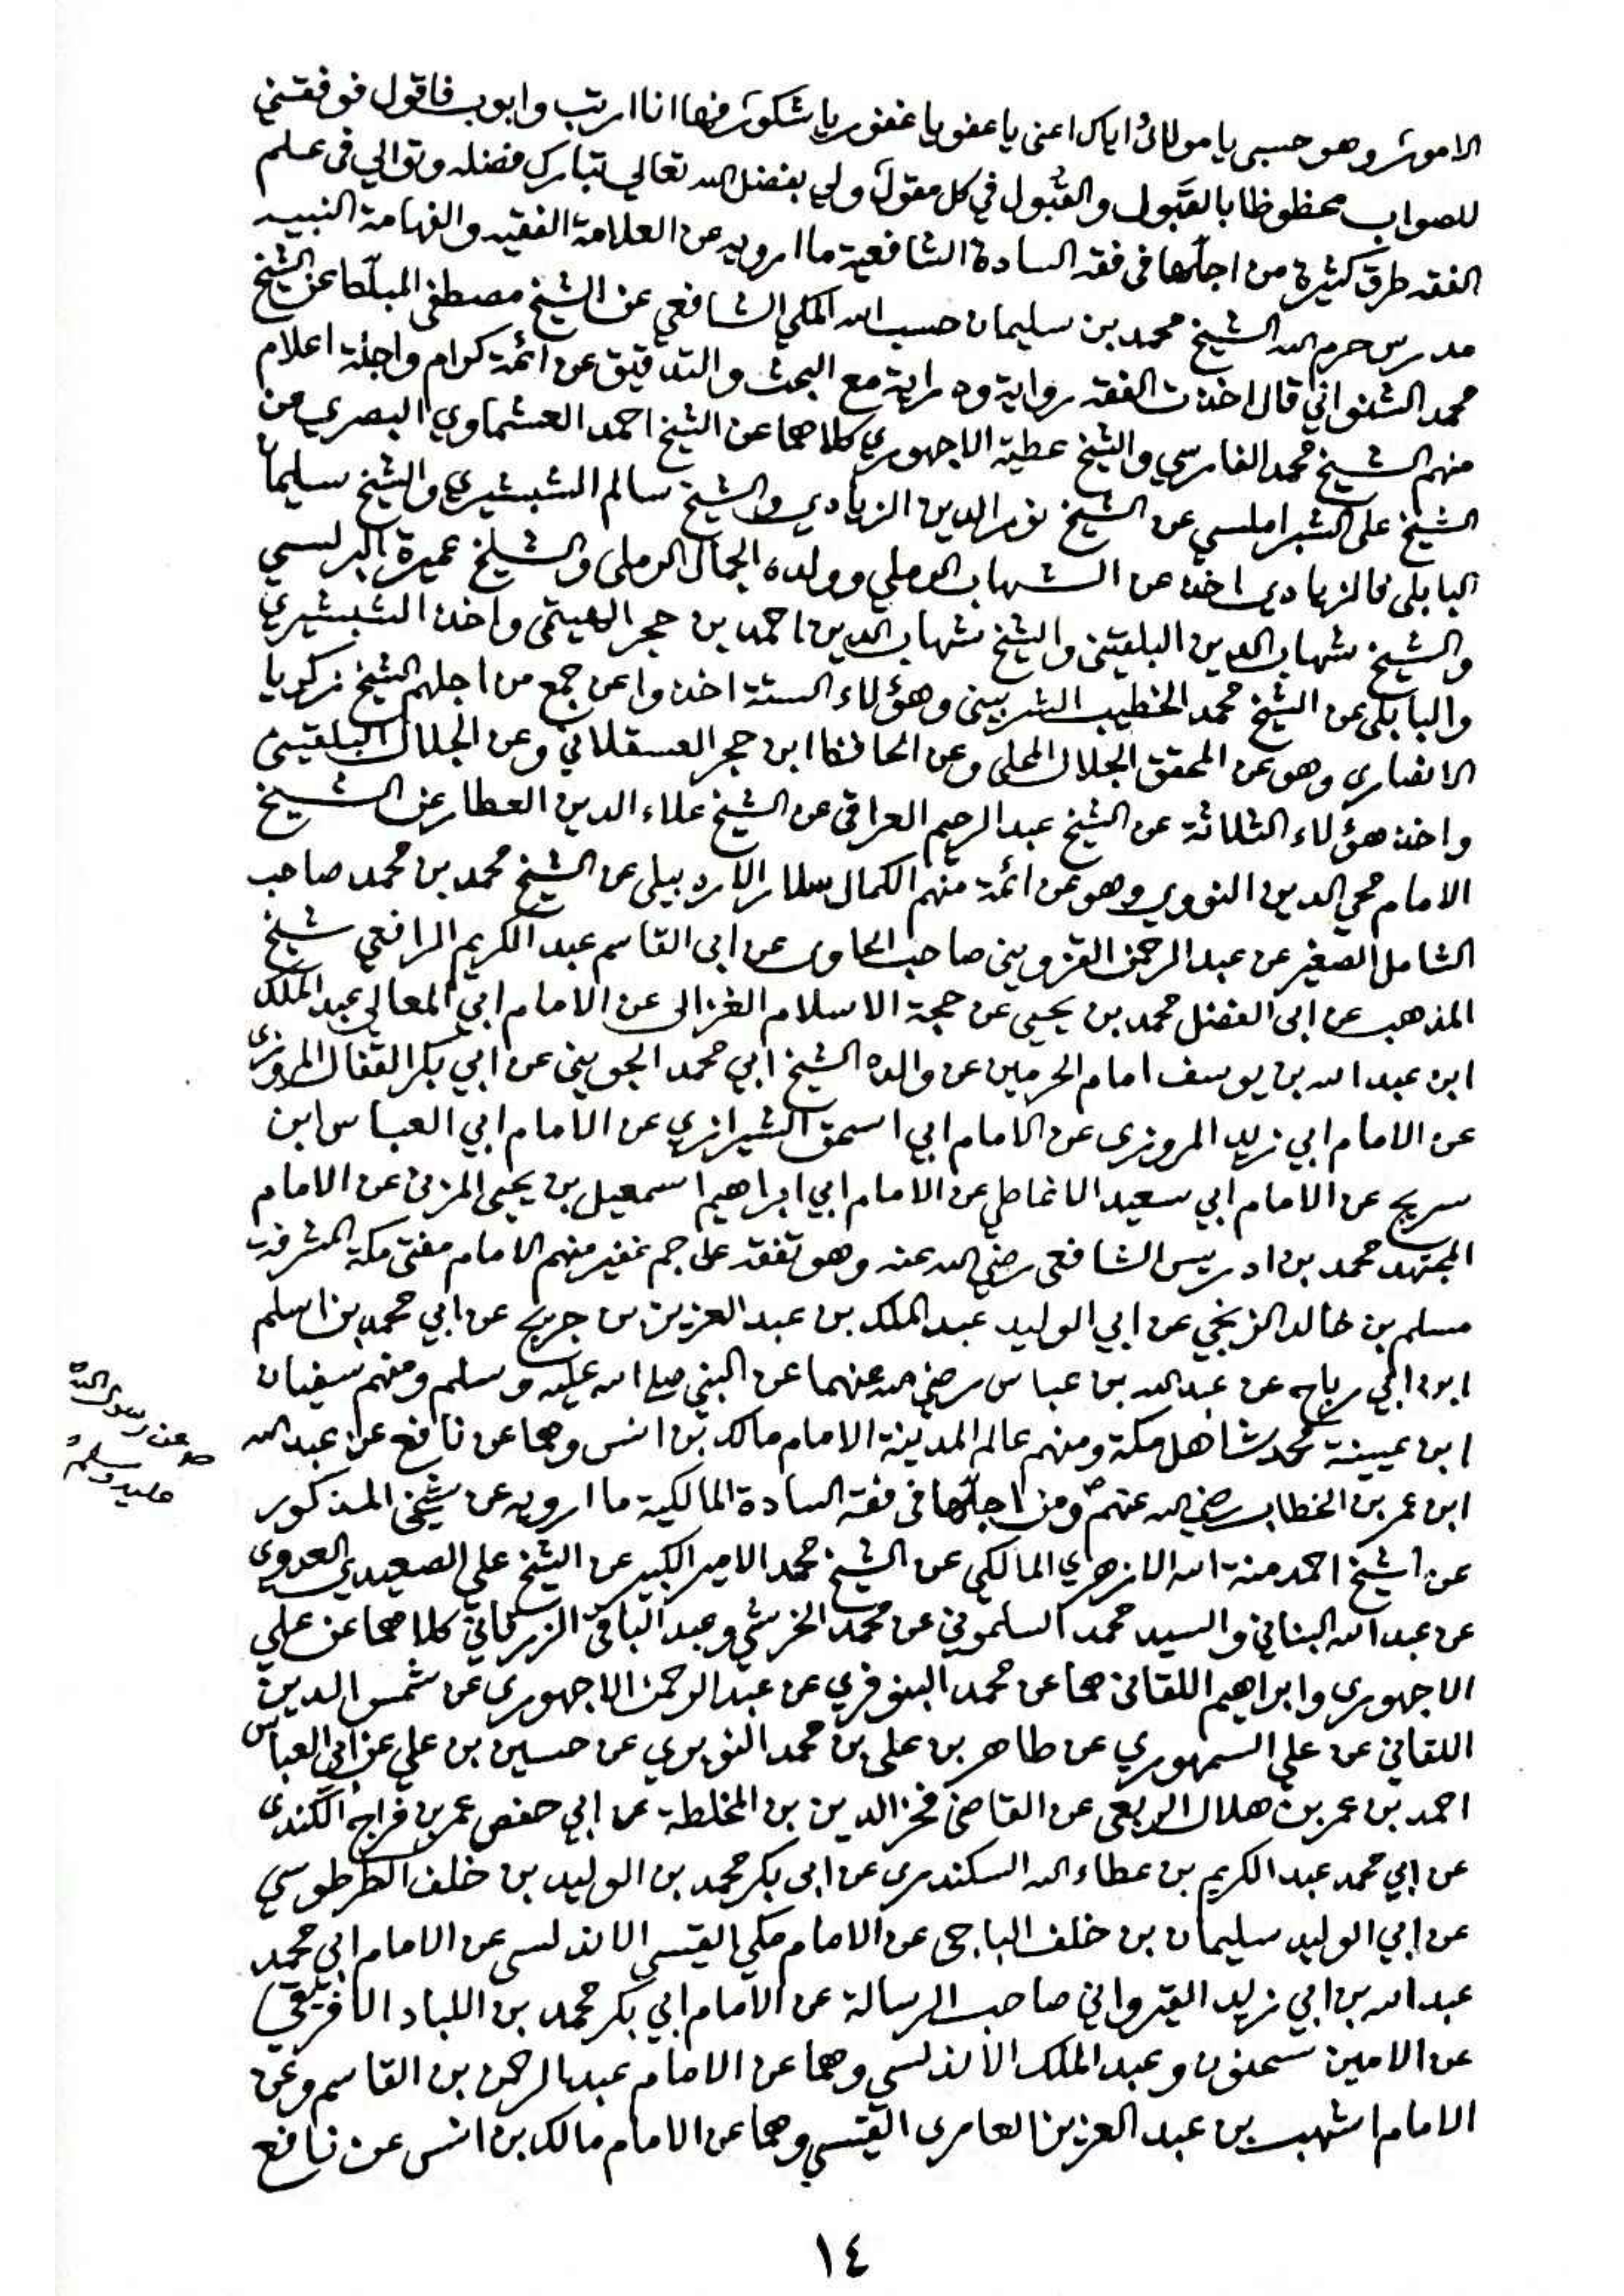 الامور وهو حسبي يا مولائي اياك اعني يا عفو يا غفور يا شكور فها انا ارتب وابوب فاقول فوفقني
للصواب محظوظا بالقبول والقبول في كل مقول ولي بفضل الله تعالى تبارك فضله وتوالي في علم
الفقه طرق كثيرة من اجلّها في فقه السادة الشافعية ما ارويه عن العلامة الفقيه والفهامة النبيه
مدرس حرم الله الشيخ محمد بن سليمان حسب الله المكي الشافعي عن الشيخ مصطفى المبلّط عن الشيخ
محمد الشنواني قال اخذت الفقه رواية ودراية مع البحث والتدقيق عن ائمة كرام واجلة اعلام
منهم الشيخ محمد الفارسي والشيخ عطية الاجهوري كلاهما عن الشيخ احمد العشماوي البصري عن
الشيخ على الشبراملسي عن الشيخ نور الدين الزيادي والشيخ سالم الشبشيري والشيخ سليمان
البابلي فالزيادي اخذ عن الشهاب الرملي وولده الجمال الرملي والشيخ عميرة البرلسي
والشيخ شهاب الدين البلقيني والشيخ شهاب الدين احمد بن حجر الهيتمى واخذ الشبشيري
والبابلي عن الشيخ محمد الخطيب الشربيني وهؤلاء الستة اخذوا عن جمع من اجلهم الشيخ زكريا
الانصاري وهو عن المحقق الجلال المحلى وعن الحافظ ابن حجر العسقلاني وعن الجلال البلقيني
واخذ هؤلاء الثلاثة عن الشيخ عبد الرحيم العراقي عن الشيخ علاء الدين العطار عن الشيخ
الامام محي الدين النووي وهو عن ائمة منهم الكمال سلار الاردبيلى عن الشيخ محمد بن محمد صاحب
الشامل الصغير عن عبد الرحمن القزويني صاحب الحاوى عن ابى القاسم عبد الكريم الرافعي شيخ
المذهب عن ابى الفضل محمد بن يحيى عن حجة الاسلام الغزالى عن الامام ابي المعالي عبد الملك
ابن عبد الله بن يوسف امام الحرمين عن والده الشيخ ابي محمد الجويني عن ابي بكر القفال المروزى
عن الامام ابي زيد المروزى عن الامام ابي اسحق الشيرازي عن الامام ابي العباس ابن
سريج عن الامام ابي سعيد الانماطي عن الامام ابي ابراهيم اسمعيل بن يحيى المزنى عن الامام
المجتهد محمد بن ادريس الشافعى رضي الله عنه وهو تفقه على جم غفير منهم الامام مفتى مكة المشرفة
مسلم بن خالد الزنجي عن ابي الوليد عبد الملك بن عبد العزيز بن جريج عن ابي محمد بن اسلم
ابن ابي رباح عن عبد الله بن عباس رضي الله عنهما عن النبي صلى الله عليه وسلم ومنهم سفيان
ابن عيينة محدث اهل مكة ومنهم عالم المدينة الامام مالك بن انس وهما عن نافع عن عبد الله
ابن عمر بن الخطاب رضي الله عنهم ومن اجلّها فى فقه السادة المالكية ما ارويه عن شيخي المذكور
عن رسول الله
ص
عليه وسلم
عن الشيخ احمد منة الله الازهري المالكي عن الشيخ محمد الامير الكبير عن الشيخ علي الصعيدي العدوى
عن عبد الله البناني والسيد محمد السلموني عن محمد الخرشي وعبد الباقى الزرقاني كلاهما عن علي
الاجهورى وابراهيم اللقانى هما عن محمد البنوفري عن عبد الرحمن الاجهورى عن شمس الدين
اللقاني عن علي السمهوري عن طاهر بن على بن محمد النويري عن حسين بن علي عن ابى العباس
احمد بن عمر بن هلال الربعي عن القاضي فخر الدين بن المخلطة عن ابي حفص عمر بن فراج الكندى
عن ابي محمد عبد الكريم بن عطاء الله السكندرى عن ابى بكر محمد بن الوليد بن خلف الطرطوسي
عن ابي الوليد سليمان بن خلف الباجى عن الامام مكي القيسي الاندلسى عن الامام ابي محمد
عبد الله بن ابي زيد القيرواني صاحب الرسالة عن الامام ابي بكر محمد بن اللباد الافريقي
عن الامين سحنون وعبد الملك الاندلسي وهما عن الامام عبد الرحمن بن القاسم وعن
الامام اشهب بن عبد العزيز العامرى القيسي وهما عن الامام مالك بن انس عن نافع
١٤